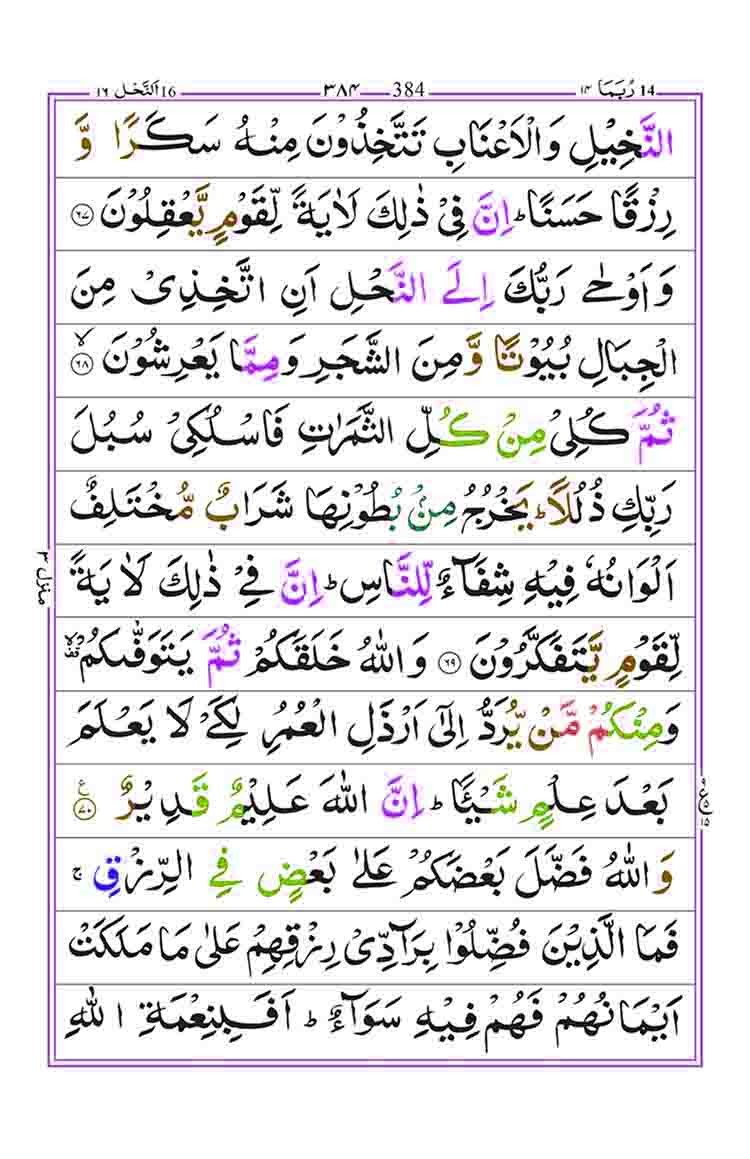 رُبَمَا 14 ١٤ 384 ٣٨٤ 16 اَلنَّحْل ١٦
النَّخِيْلِ وَالْاَعْنَابِ تَتَّخِذُوْنَ مِنْهُ سَكَرًا وَّ
رِزْقًا حَسَنًاؕ اِنَّ فِيْ ذٰلِكَ لَاٰيَةً لِّقَوْمٍ يَّعْقِلُوْنَ ۝۶۷
وَ اَوْحٰى رَبُّكَ اِلَى النَّحْلِ اَنِ اتَّخِذِيْ مِنَ
الْجِبَالِ بُيُوْتًا وَّ مِنَ الشَّجَرِ وَ مِمَّا يَعْرِشُوْنَ ۝۶۸ۙ
ثُمَّ كُلِيْ مِنْ كُلِّ الثَّمَرٰتِ فَاسْلُكِيْ سُبُلَ
رَبِّكِ ذُلُلًاؕ يَخْرُجُ مِنْۢ بُطُوْنِهَا شَرَابٌ مُّخْتَلِفٌ
اَلْوَانُهٗ فِيْهِ شِفَآءٌ لِّلنَّاسِؕ اِنَّ فِيْ ذٰلِكَ لَاٰيَةً
لِّقَوْمٍ يَّتَفَكَّرُوْنَ ۝۶۹ وَاللّٰهُ خَلَقَكُمْ ثُمَّ يَتَوَفّٰىكُمْ ۙ۫
وَمِنْكُمْ مَّنْ يُّرَدُّ اِلٰۤى اَرْذَلِ الْعُمُرِ لِكَيْ لَا يَعْلَمَ
بَعْدَ عِلْمٍ شَيْـًٔاؕ اِنَّ اللّٰهَ عَلِيْمٌ قَدِيْرٌ ۝۷۰ ع
وَاللّٰهُ فَضَّلَ بَعْضَكُمْ عَلٰى بَعْضٍ فِي الرِّزْقِۚ
فَمَا الَّذِيْنَ فُضِّلُوْا بِرَآدِّيْ رِزْقِهِمْ عَلٰى مَا مَلَكَتْ
اَيْمَانُهُمْ فَهُمْ فِيْهِ سَوَآءٌؕ اَفَبِنِعْمَةِ اللّٰهِ
منزل ٣
ع ١٥